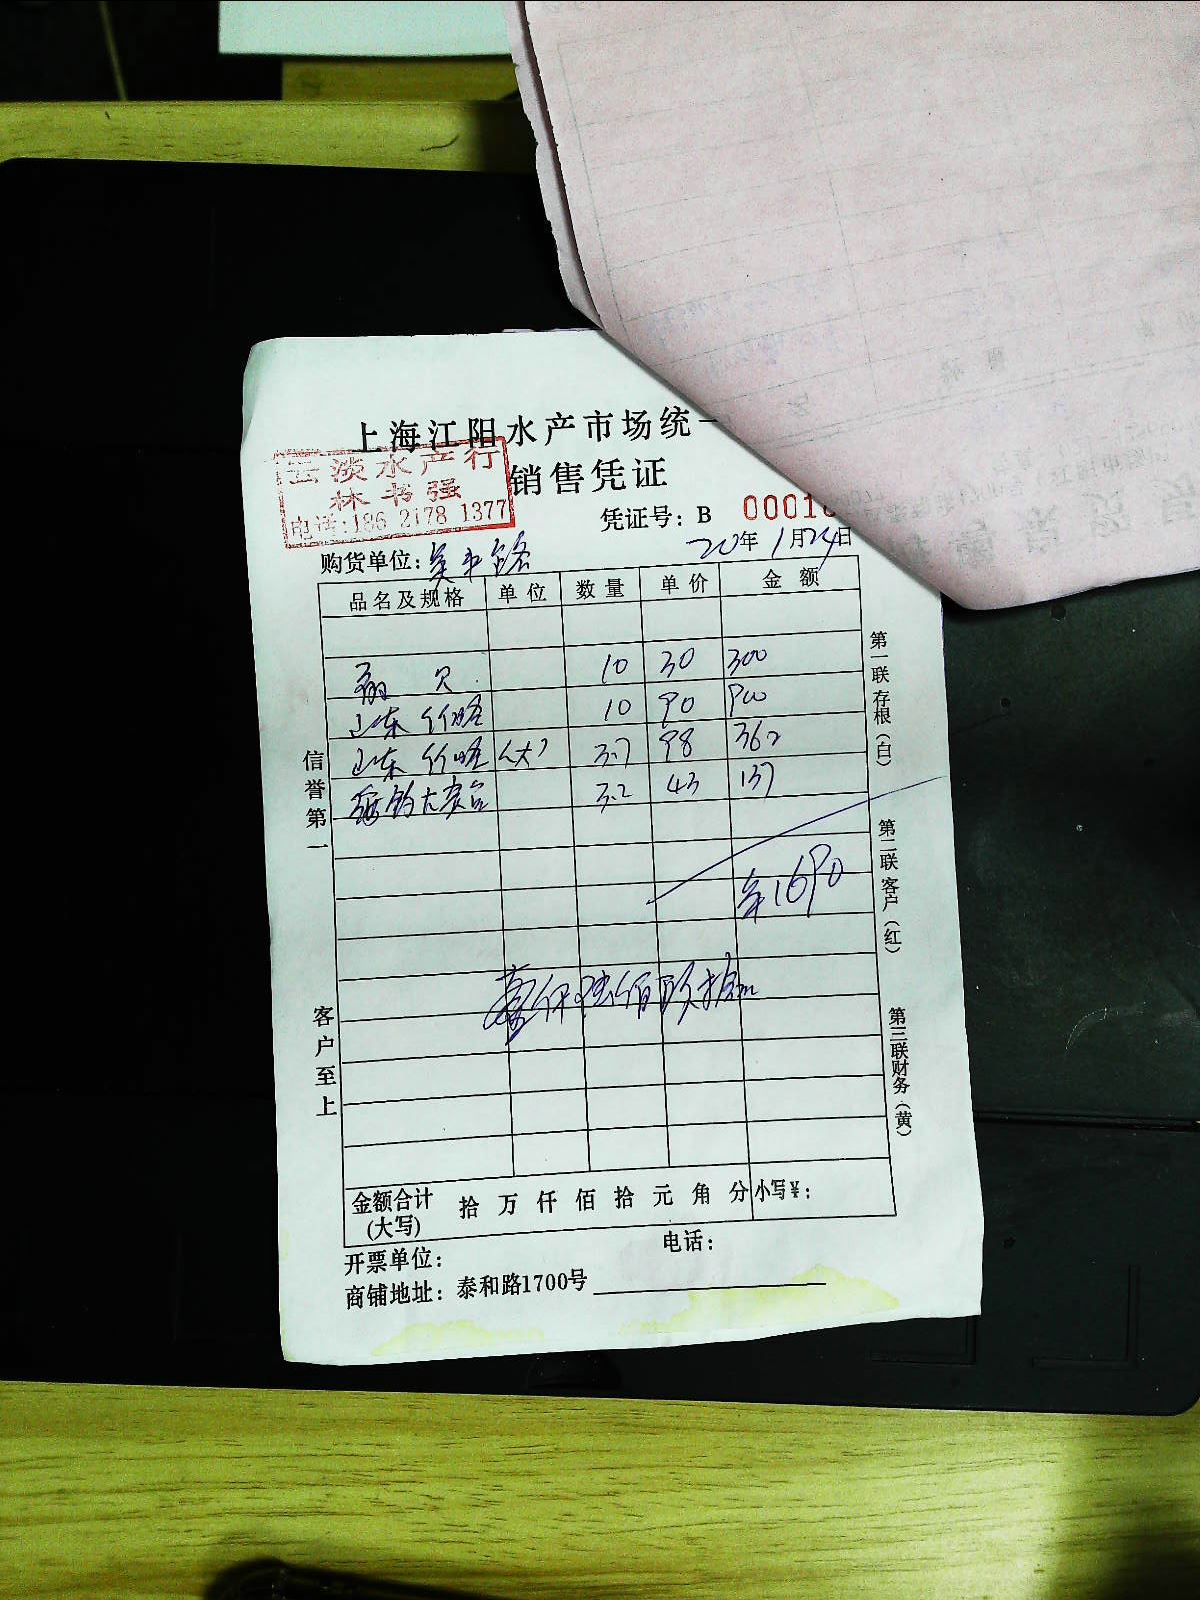 上海江阳水产市场统一
销售凭证
云淡水产行
林书强
电话:186 2178 1377
凭证号: B 00018
购货单位:
20年1月24日
品名及规格 单位 数量 单价 金额
贝 10 30 300
山东 10 90 900
山东 (大) 3.7 98 362
3.2 43 137
1690
壹仟陆佰玖拾元
信誉第一
客户至上
第一联存根(白)
第二联客户(红)
第三联财务(黄)
金额合计(大写) 拾 万 仟 佰 拾 元 角 分 小写¥:
开票单位: 电话:
商铺地址: 泰和路1700号